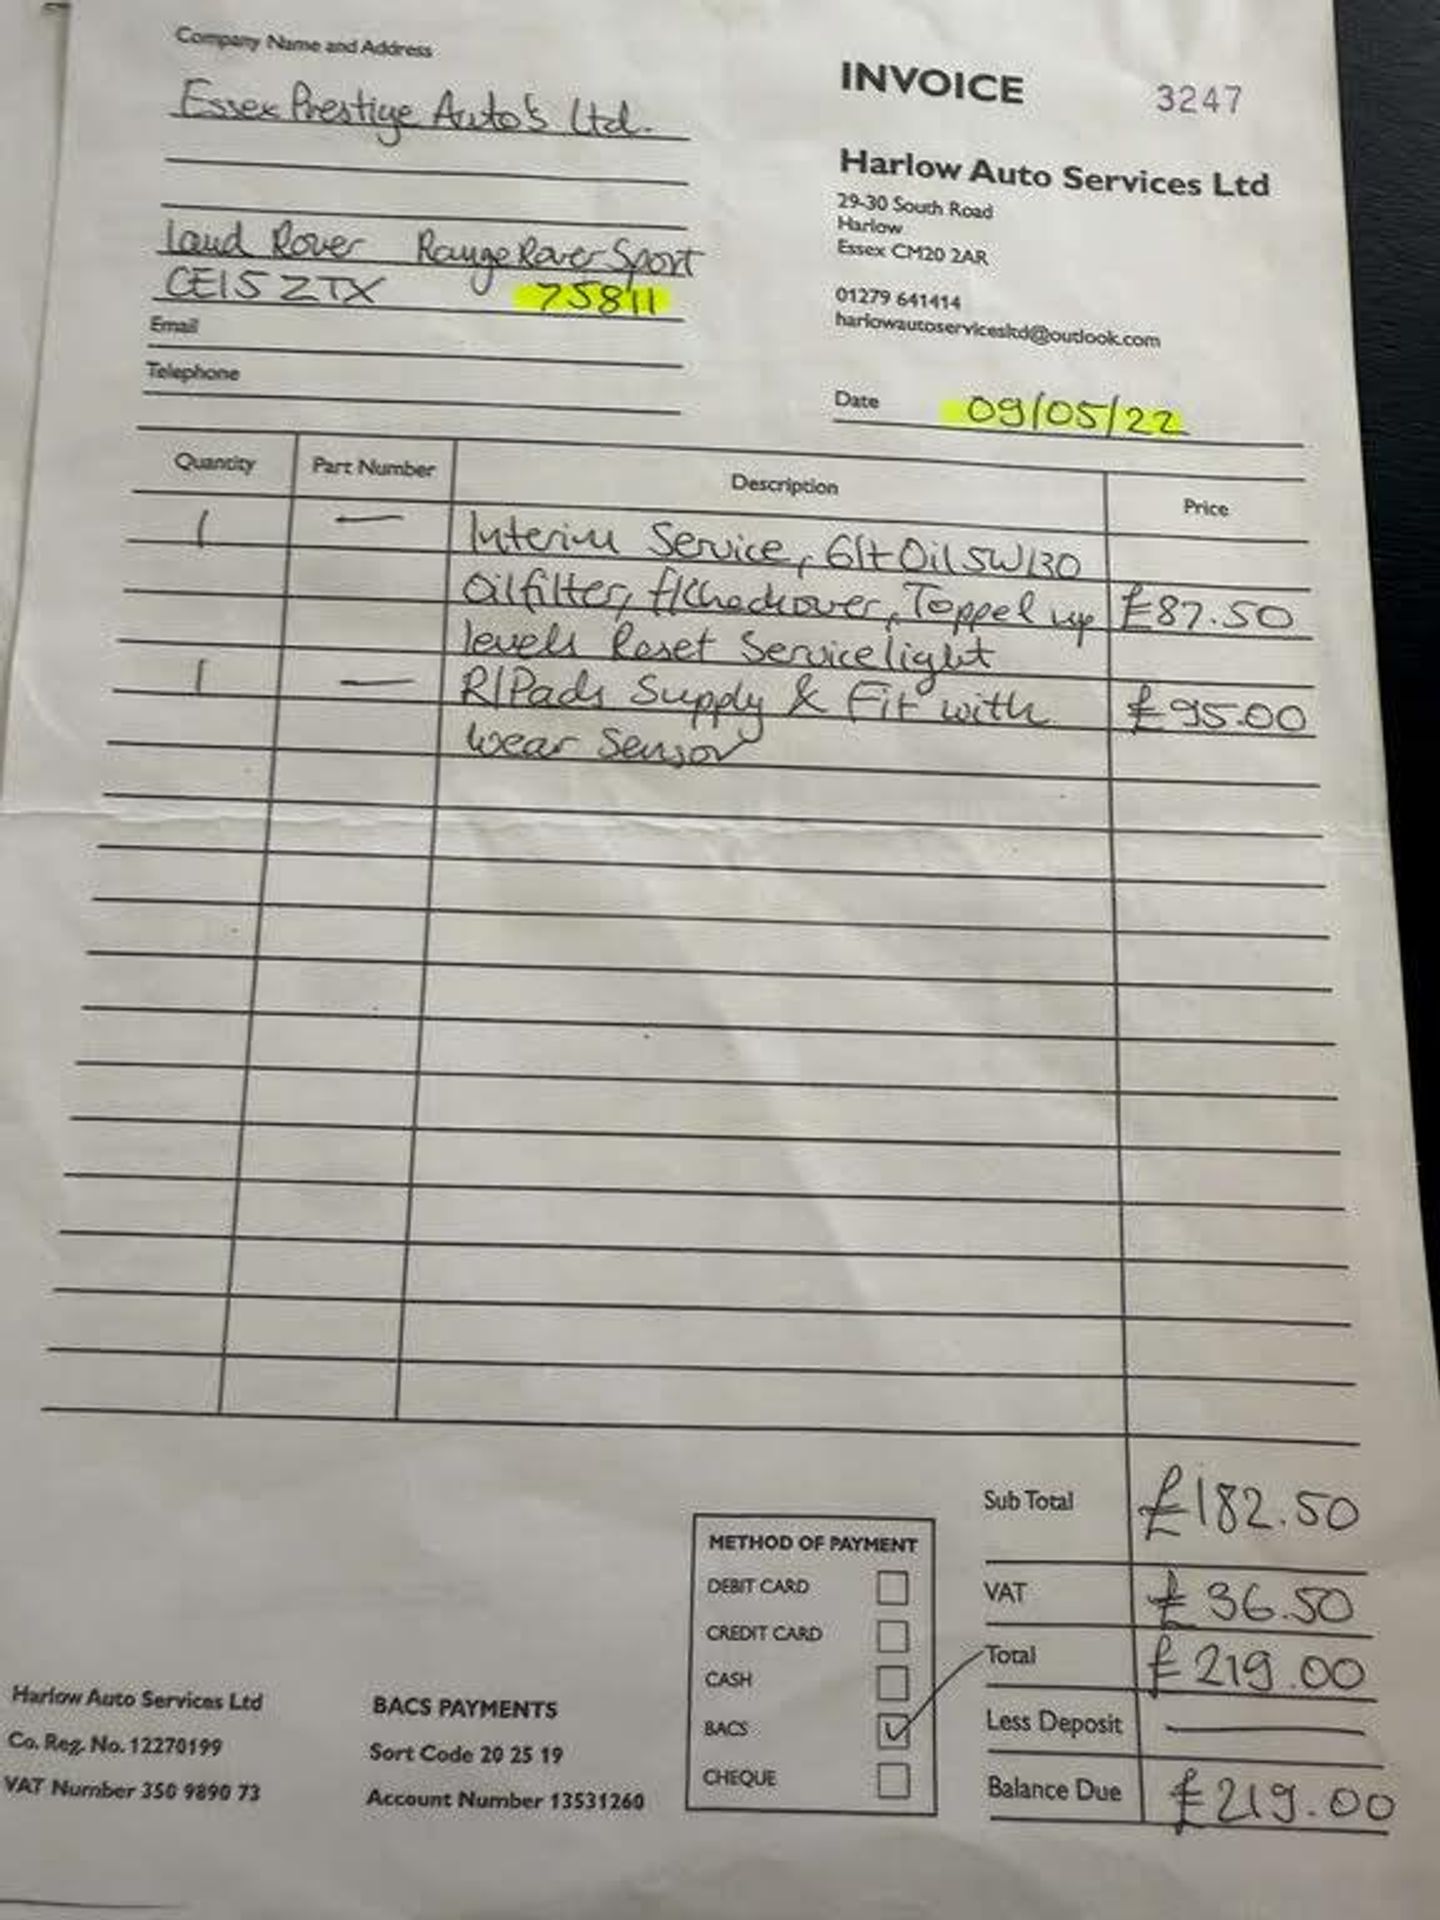 Company Name and Address
Essex Prestige Auto's Ltd.
INVOICE 3247
Harlow Auto Services Ltd
29-30 South Road
Harlow
Essex CM20 2AR
01279 641414
harlowautoservicesltd@outlook.com
Land Rover Range Rover Sport
CE15 ZTX 75811
Email
Telephone
Date 09/05/22
Quantity Part Number Description Price
1 — Interim Service, 6lt Oil 5W/30
Oilfilter, f/Checkover, Topped up £87.50
levels Reset Service light
1 — R/Pads Supply & Fit with £95.00
wear Sensor
Sub Total £182.50
VAT £36.50
Total £219.00
Less Deposit —
Balance Due £219.00
METHOD OF PAYMENT
DEBIT CARD
CREDIT CARD
CASH
BACS ✓
CHEQUE
Harlow Auto Services Ltd
Co. Reg. No. 12270199
VAT Number 350 9890 73
BACS PAYMENTS
Sort Code 20 25 19
Account Number 13531260